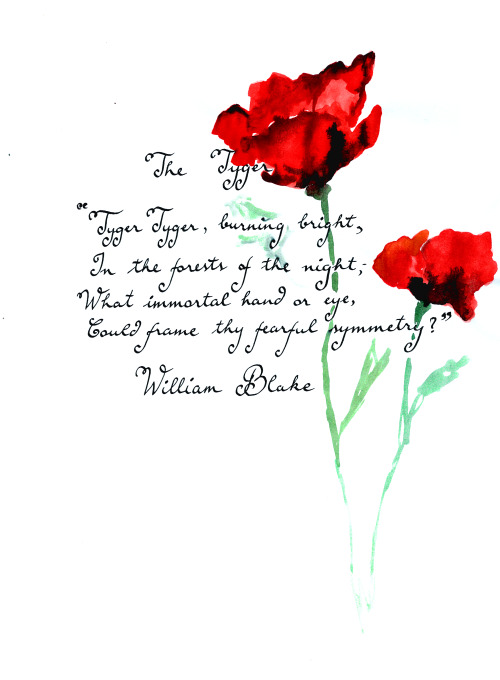 The Tyger
"Tyger Tyger, burning bright,
In the forests of the night;
What immortal hand or eye,
Could frame thy fearful symmetry?"
William Blake